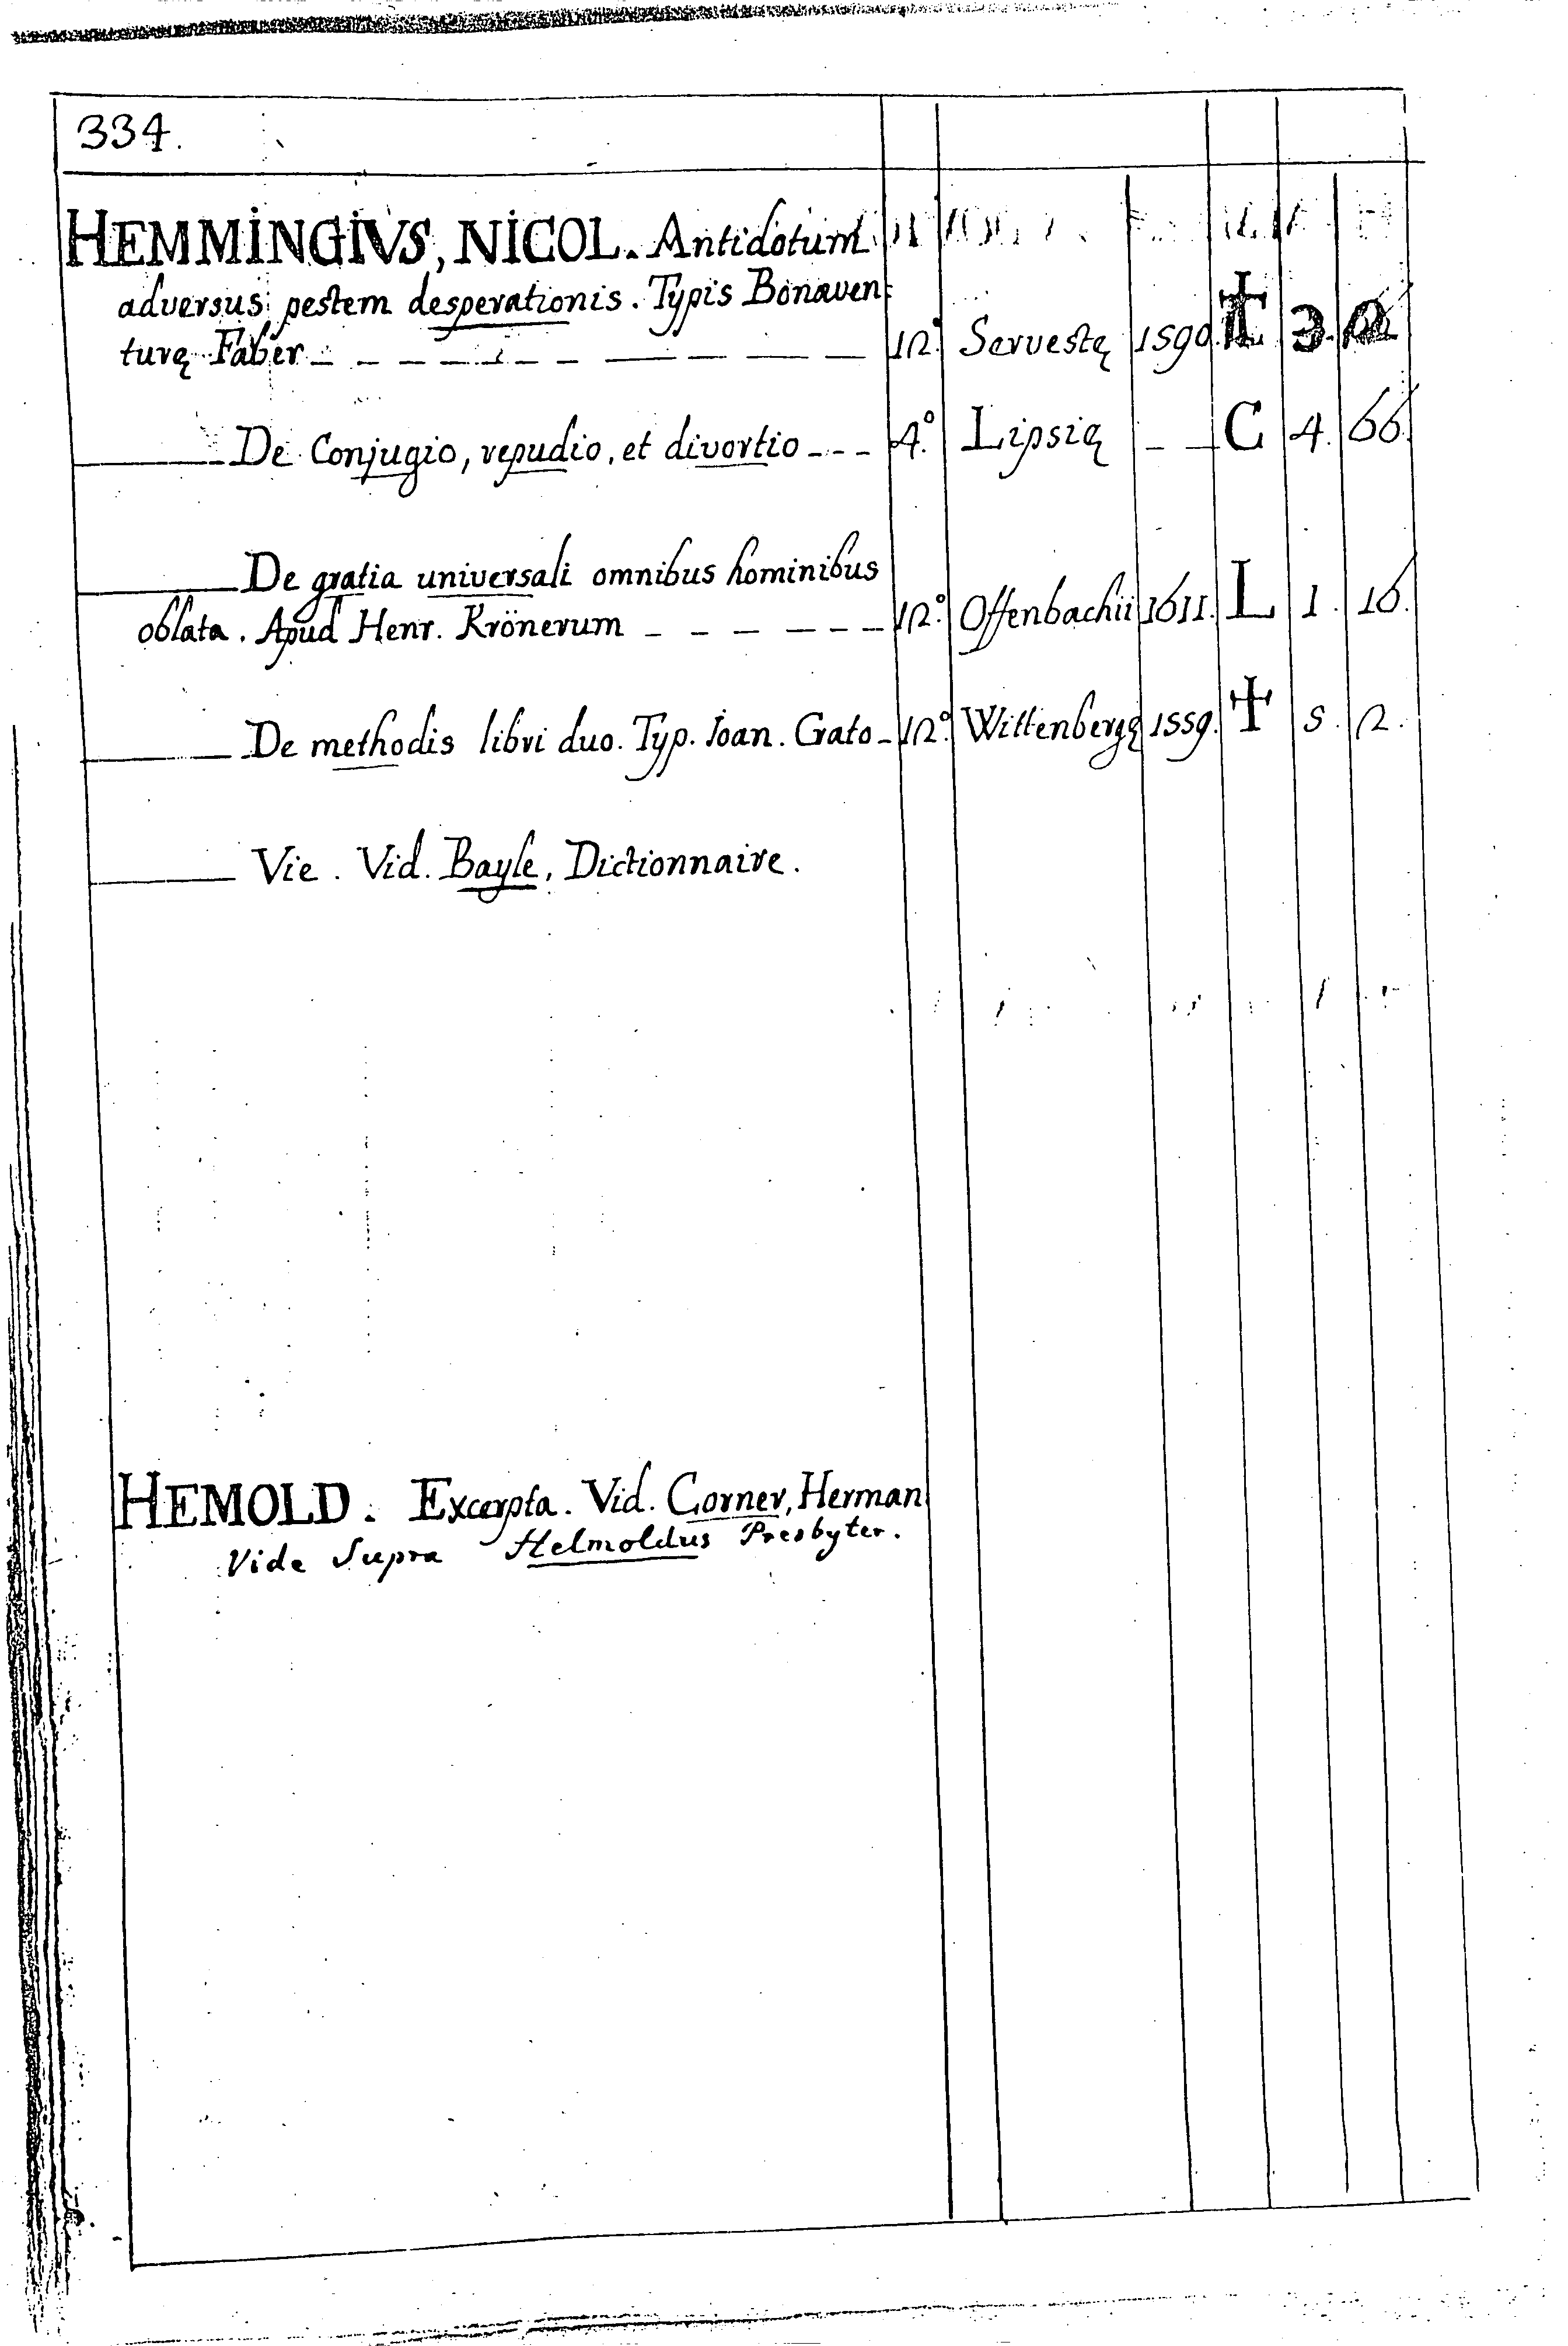 334.
HEMMINGIVS, NICOL. Antidotum
adversus pestem desperationis. Typis Bonaven:
turę Faber _ _ _ _ _ _ _ _ _ _ _ 12.° Servestę 1590. † 3.
_____ De Conjugio, repudio, et divortio _ _ _ 4.° Lipsię _ _ C 4. 66.
_____ De gratia universali omnibus hominibus
oblata. Apud Henr. Krönerum _ _ _ _ _ _ 12.° Offenbachii 1611. L 1. 16.
_____ De methodis libri duo. Typ. Ioan. Crato _ 12.° Wittenbergę 1559. † 5. 2.
_____ Vie. Vid. Bayle, Dictionnaire.
HEMOLD. Excerpta. Vid. Corner, Herman
Vide Supra Helmoldus Presbyter.